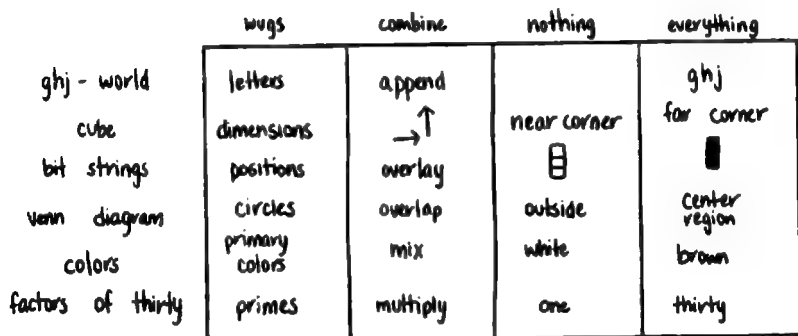 wugs combine nothing everything
ghj - world letters append ghj
cube dimensions near corner far corner
bit strings positions overlay
venn diagram circles overlap outside center region
colors primary colors mix white brown
factors of thirty primes multiply one thirty